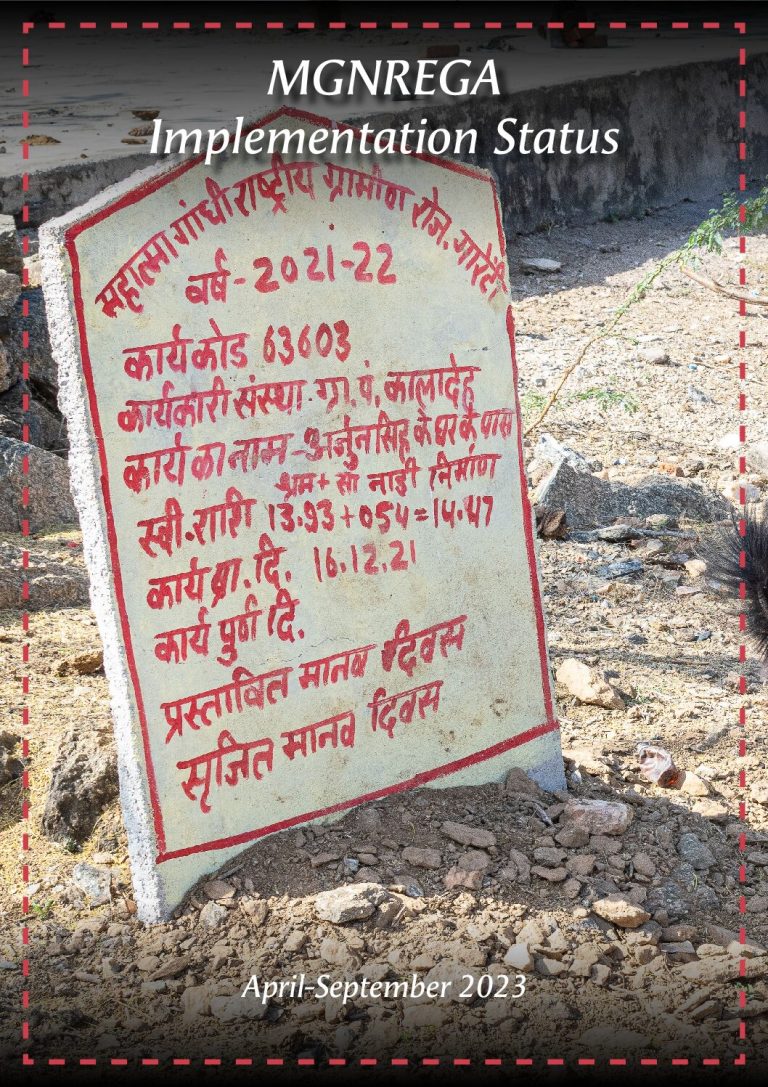 MGNREGA
Implementation Status
महात्मा गांधी राष्ट्रीय ग्रामीण रोज. गारंटी
वर्ष - 2021-22
कार्य कोड 63603
कार्यकारी संस्था - ग्रा. पं. कालादेह
कार्य का नाम - अर्जुनसिह के घर के पास
श्रम + सा नाडी निर्माण
स्वी. राशि 13.93 + 054 = 14.47
कार्य प्रा. दि. 16.12.21
कार्य पुर्ण दि.
प्रस्तावित मानव दिवस
सृजित मानव दिवस
April-September 2023